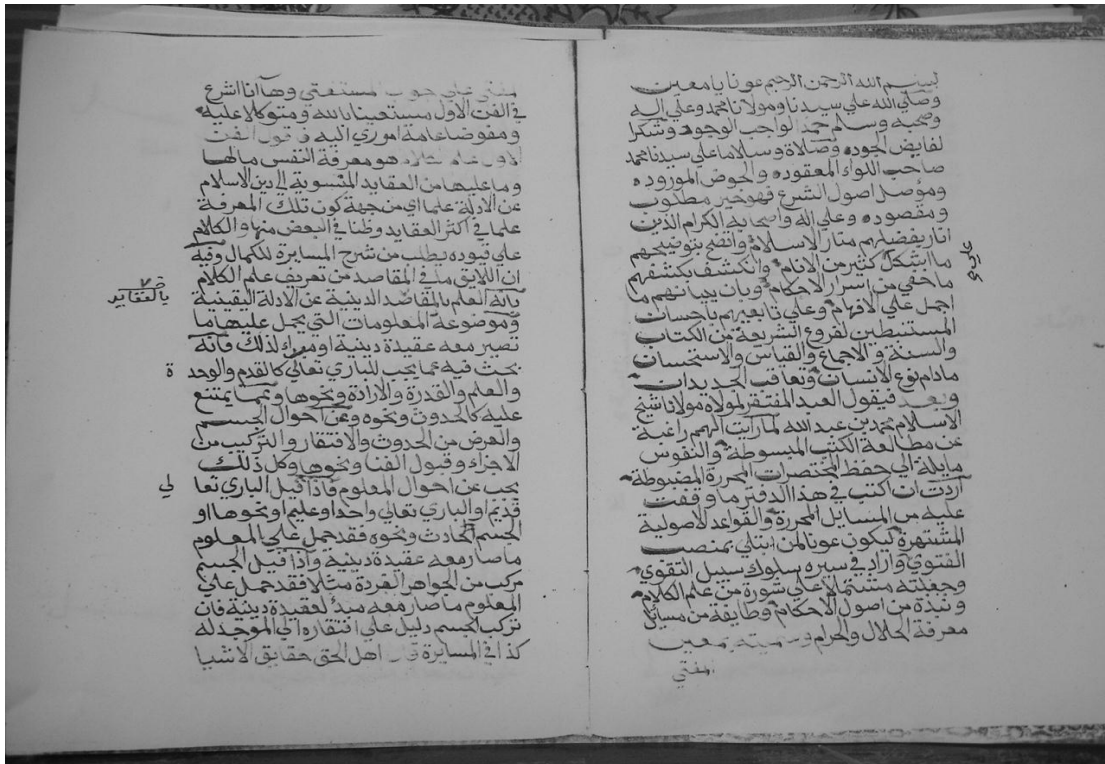 لبسم الله الرحمن الرحيم عونا يا معين
وصلي الله علي سيدنا ومولانا محمد وعلي اله
وصحبه وسلم حمدا لواجب الوجود وشكرا
لفايض الجوده وصلاة وسلاما علي سيدنا محمد
صاحب اللواء المعقوده والحوض الموروده
وموصل اصول الشرع فهو خير مطلوب
ومقصوده وعلي اله واصحابه الكرام الذين
انار بفضلهم منار الاسلام واتضح بتوضيحهم
ما اشكل كثير من الانام وانكشف بكشفهم
ما خفي من اسرار الاحكام وبان ببيانهم ما
اجمل علي الافهام وعلي تابعيهم باحسان
المستنبطين لفروع الشريعة من الكتاب
والسنة والاجماع والقياس والاستحسان
مادام نوع الانسان وتعاقب الجديدان
وبعد فيقول العبد المفتقر لمولاه مولانا شيخ
الاسلام محمد بن عبد الله لما رايت الهمم راغبة
عن مطالعة الكتب المبسوطة والنفوس
مايلة الي حفظ المختصرات المحررة المضبوطة
اردت ان اكتب في هذا الدفتر ما وقفت
عليه من المسايل المحررة والقواعد الاصولية
المشتهرة ليكون عونا لمن ابتلي بمنصب
الفتوي واراد في سيره سلوك سبيل التقوي
وجعلته مشتملا علي شورة من علم الكلام
ونبذة من اصول الاحكام وطايفة من مسائل
معرفة الحلال والحرام وسميته بمعين
المفتي
المفتي علي جواب المستفتي وها انا اشرع
في الفن الاول مستعينا بالله ومتوكلا عليه
ومفوضا عامة اموري اليه فنقول الفن
الاول علم الكلام هو معرفة النفس ما لها
وما عليها من العقايد المنسوبة الي دين الاسلام
عن الادلة علما اي من جهة كون تلك المعرفة
علما في اكثر العقايد وظنا في البعض منها والكلام
علي قيوده يطلب من شرح المسايرة للكمال وفيه
ان اللايق ما في المقاصد من تعريف علم الكلام
بالعقايد
بانه العلم بالمقاصد الدينية عن الادلة اليقينية
وموضوعه المعلومات التي يحمل عليها ما
تصير معه عقيدة دينية او مبدا لذلك فانه
بحث فيه عما يجب للباري تعالي كالقدم والوحدة
والعلم والقدرة والارادة ونحوها وعما يمتنع
عليه كالحدوث ونحوه وعن احوال الجسم
والعرض من الحدوث والافتقار والتركيب من
الاجزاء وقبول الفنا ونحوها وكل ذلك
يجب عن احوال المعلوم فاذا قيل الباري تعالي
قديم او الباري تعالي واحد او عليم او نحوها او
الجسم الحادث ونحوه فقد حمل علي المعلوم
ما صار معه عقيدة دينية واذا قيل الجسم
مركب من الجواهر الفردة مثلا فقد حمل علي
المعلوم ما صار معه مبدأ لعقيدة دينية فان
تركب الجسم دليل علي افتقاره الي الموجد له
كذا في المسايرة قال اهل الحق حقايق الاشيا